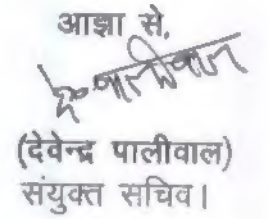 आज्ञा से,
(देवेन्द्र पालीवाल)
संयुक्त सचिव।